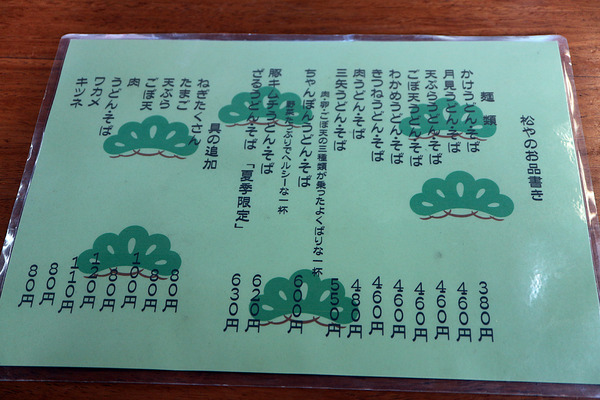 松やのお品書き
麺類
かけうどん・そば 380円
月見うどん・そば 460円
天ぷらうどん・そば 460円
ごぼ天うどん・そば 460円
わかめうどん・そば 460円
きつねうどん・そば 460円
肉うどん・そば 480円
三矢うどん・そば 550円
肉・卵・ごぼ天の三種類が乗ったよくばりな一杯
ちゃんぽんうどん・そば 600円
野菜たっぷりでヘルシーな一杯
豚キムチうどん・そば 620円
ざるうどん・そば「夏季限定」 630円
具の追加
ねぎたくさん 80円
たまご 80円
天ぷら 100円
ごぼ天 80円
肉 120円
うどん・そば 110円
ワカメ 80円
キツネ 80円